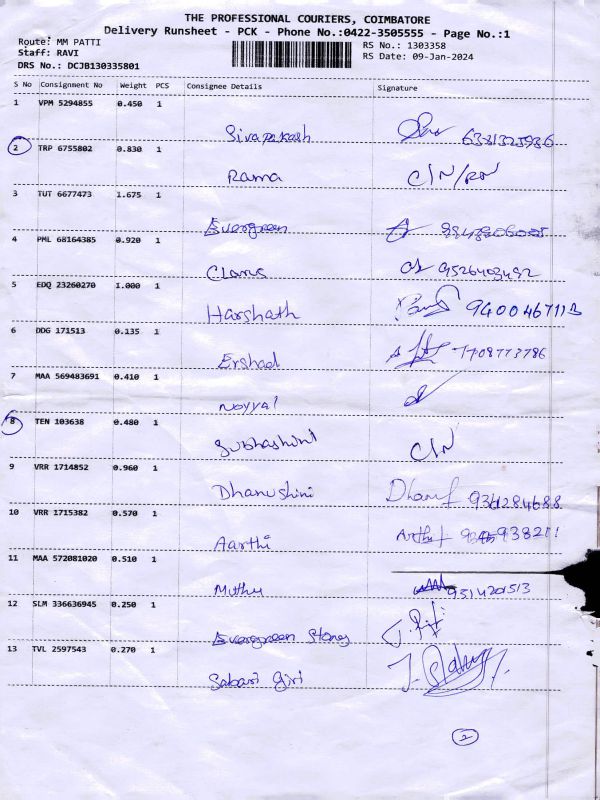 THE PROFESSIONAL COURIERS, COIMBATORE
Delivery Runsheet - PCK - Phone No.:0422-3505555 - Page No.:1
Route: MM PATTI
RS No.: 1303358
Staff: RAVI
RS Date: 09-Jan-2024
DRS No.: DCJB130335801
S No Consignment No Weight PCS Consignee Details Signature
1 VPM 5294855 0.450 1
Sivaprakash
2 TRP 6755802 0.830 1
Rama C/N/RN
3 TUT 6677473 1.675 1
Evergreen
4 PML 68164385 0.920 1
9526403492
5 EDQ 23260270 1.000 1
Harshath 9400467113
6 DDG 171513 0.135 1
Ershad 7708773786
7 MAA 569483691 0.410 1
Noyyal
8 TEN 103638 0.480 1
Subhashini C/N
9 VRR 1714852 0.960 1
Dhanushini
10 VRR 1715382 0.570 1
Aarthi
11 MAA 572081020 0.510 1
Muthu 9514201513
12 SLM 336636945 0.250 1
Evergreen Stones
13 TVL 2597543 0.270 1
Sabari Giri
2